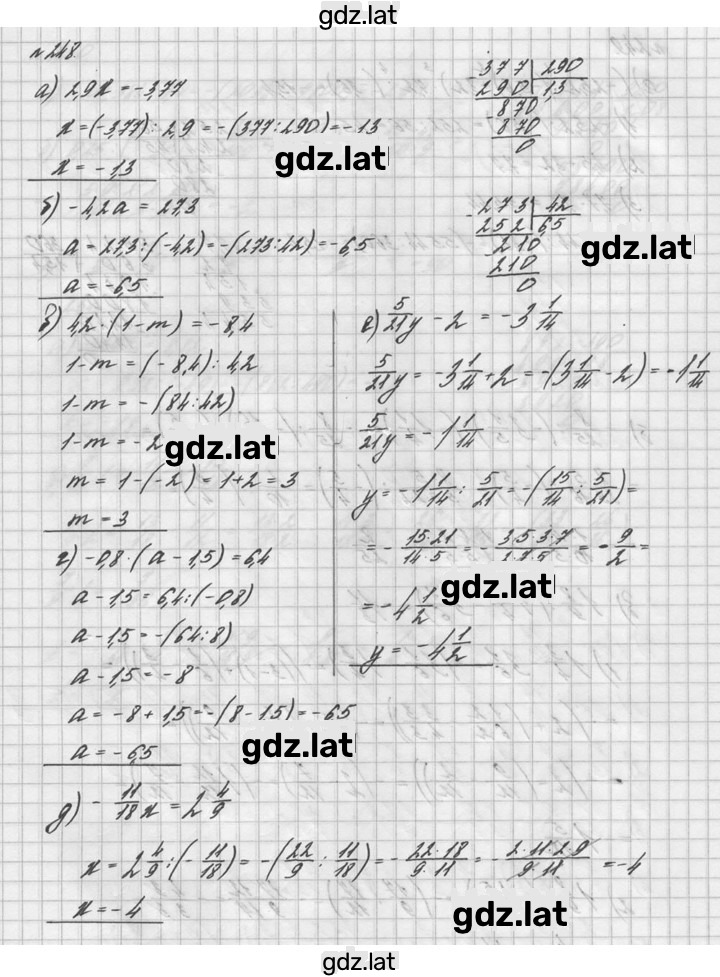 gdz.lat
№248
а) 2,9x = -3,77
x = (-3,77) : 2,9 = -(377 : 290) = -1,3
x = -1,3
377 290
290 1,3
870
870
0
gdz.lat
б) -4,2a = 27,3
a = 27,3 : (-4,2) = -(273 : 42) = -6,5
a = -6,5
273 42
252 6,5
210
210
0
gdz.lat
в) 4,2 · (1-m) = -8,4
1-m = (-8,4) : 4,2
1-m = -(84 : 42)
1-m = -2
gdz.lat
m = 1-(-2) = 1+2 = 3
m = 3
г) -0,8 · (a - 1,5) = 6,4
a - 1,5 = 6,4 : (-0,8)
a - 1,5 = -(64 : 8)
a - 1,5 = -8
a = -8 + 1,5 = -(8 - 1,5) = -6,5
a = -6,5
gdz.lat
е) 5/21 y - 2 = -3 1/14
5/21 y = -3 1/14 + 2 = -(3 1/14 - 2) = -1 1/14
5/21 y = -1 1/14
y = -1 1/14 : 5/21 = -(15/14 : 5/21) =
= - 15·21/14·5 = - 3·5·3·7/2·7·5 = - 9/2 =
gdz.lat
= -4 1/2
y = -4 1/2
д) - 11/18 x = 2 4/9
x = 2 4/9 : (- 11/18) = -(22/9 : 11/18) = - 22·18/9·11 = - 2·11·2·9/9·11 = -4
x = -4
gdz.lat
gdz.lat